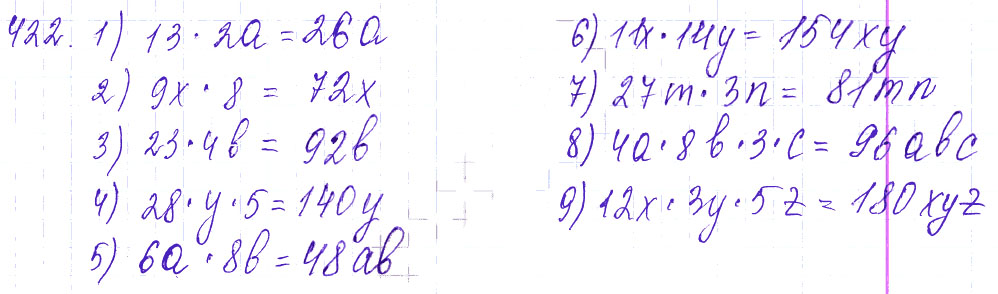 422. 1) 13 · 2a = 26a
2) 9x · 8 = 72x
3) 23 · 4b = 92b
4) 28 · y · 5 = 140y
5) 6a · 8b = 48ab
6) 11x · 14y = 154xy
7) 27m · 3n = 81mn
8) 4a · 8b · 3 · c = 96abc
9) 12x · 3y · 5z = 180xyz